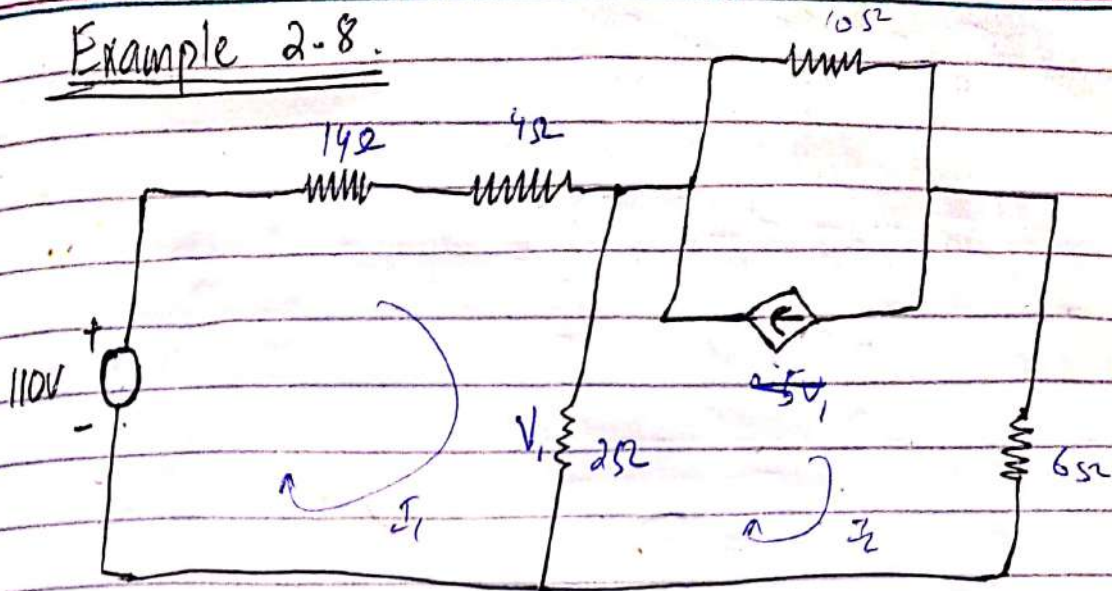 Example 2.8.
10Ω
14Ω
4Ω
+
110V
-
V₁
2Ω
5V₁
6Ω
I₁
I₂